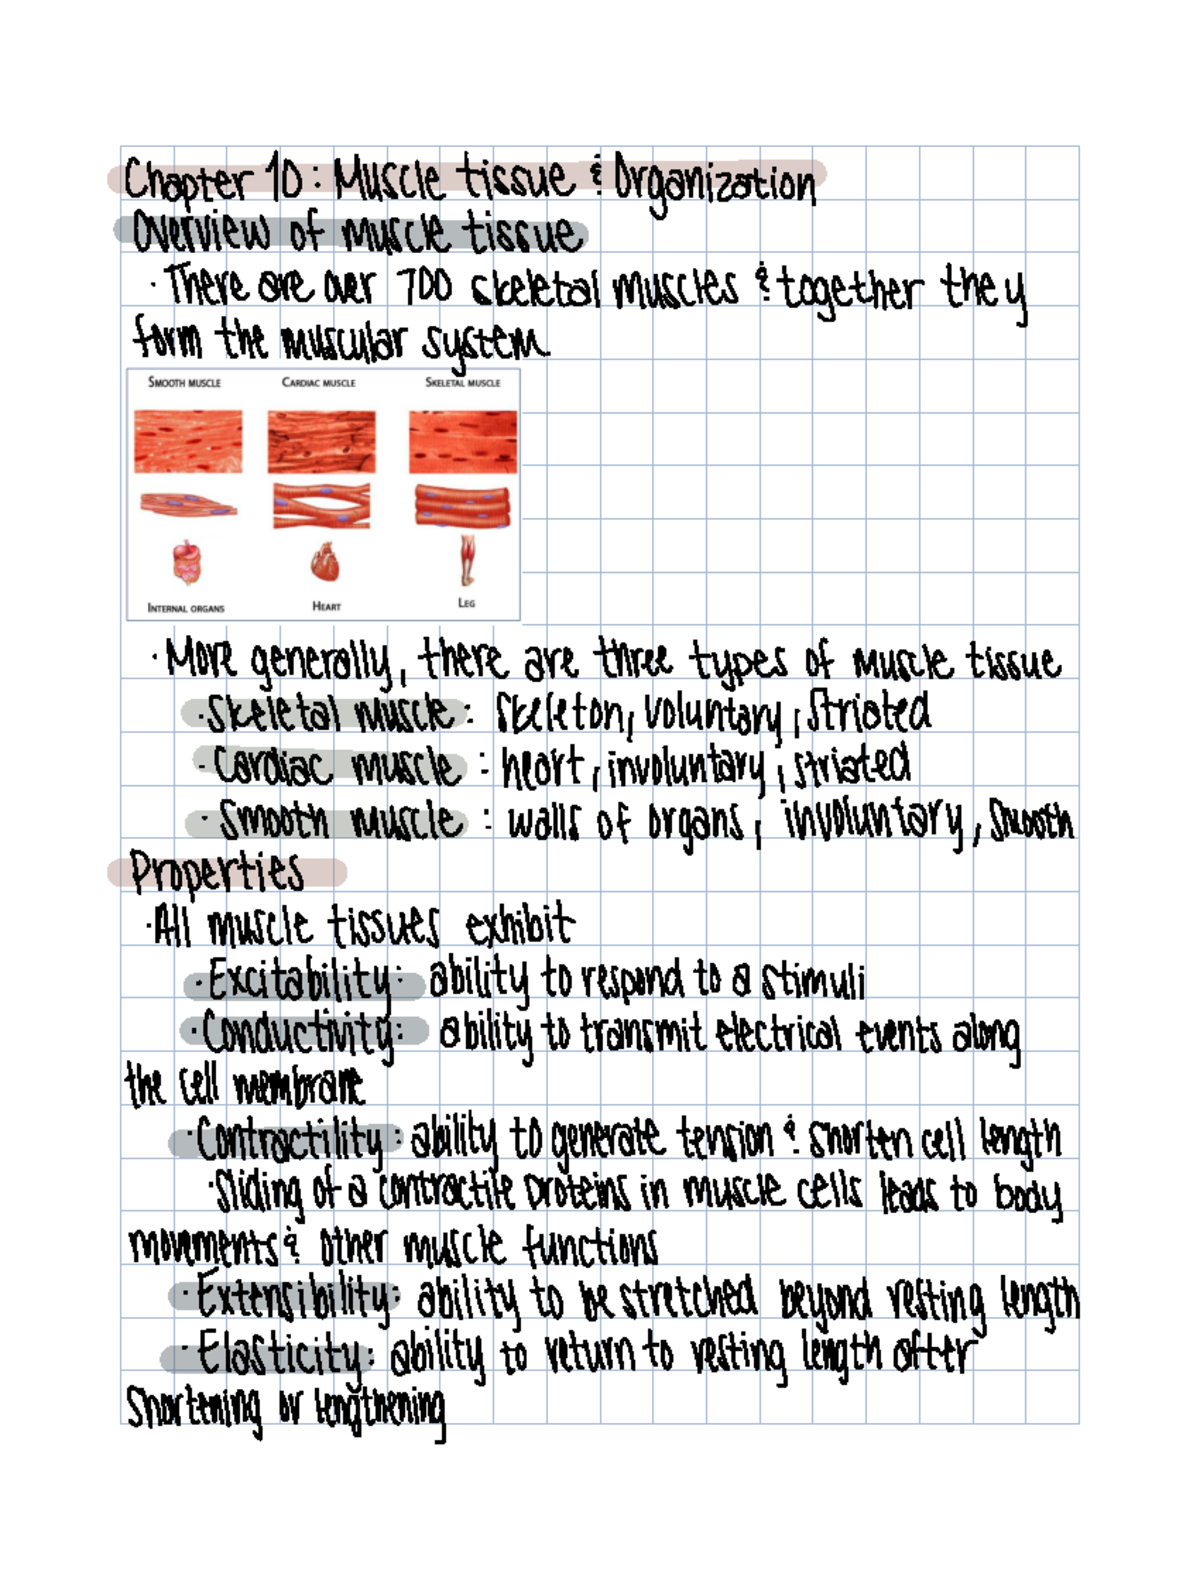 Chapter 10: Muscle tissue & Organization
Overview of muscle tissue
· There are over 700 skeletal muscles & together they
form the muscular system
SMOOTH MUSCLE CARDIAC MUSCLE SKELETAL MUSCLE
INTERNAL ORGANS HEART LEG
· More generally, there are three types of muscle tissue
· Skeletal muscle: skeleton, voluntary, striated
· Cardiac muscle: heart, involuntary, striated
· Smooth muscle: walls of organs, involuntary, smooth
Properties
· All muscle tissues exhibit
· Excitability: ability to respond to a stimuli
· Conductivity: ability to transmit electrical events along
the cell membrane
· Contractility: ability to generate tension & shorten cell length
· Sliding of a contractile proteins in muscle cells leads to body
movements & other muscle functions
· Extensibility: ability to be stretched beyond resting length
· Elasticity: ability to return to resting length after
shortening or lengthening